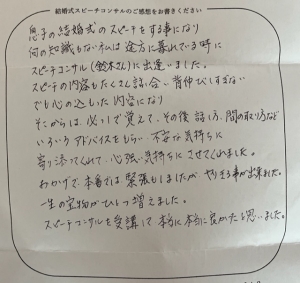 結婚式スピーチコンサルのご感想をお書きください
息子の結婚式のスピーチをする事になり
何の知識もない私は途方に暮れている時に
スピーチコンサル(鈴木さん)に出逢いました。
スピーチの内容もたくさん話し合い背伸びしすぎない
でも心の込もった内容になり
そこからは、必死で覚えて、その後 話し方、間の取り方など
いろいろアドバイスをもらい 不安な気持ちに
寄り添ってくれて、心強い気持ちに させてくれました。
おかげで、本番では、緊張もしましたが、やりきる事が出来ました。
一生の宝物がひとつ増えました。
スピーチコンサルを受講して 本当に本当に良かったと思いました。